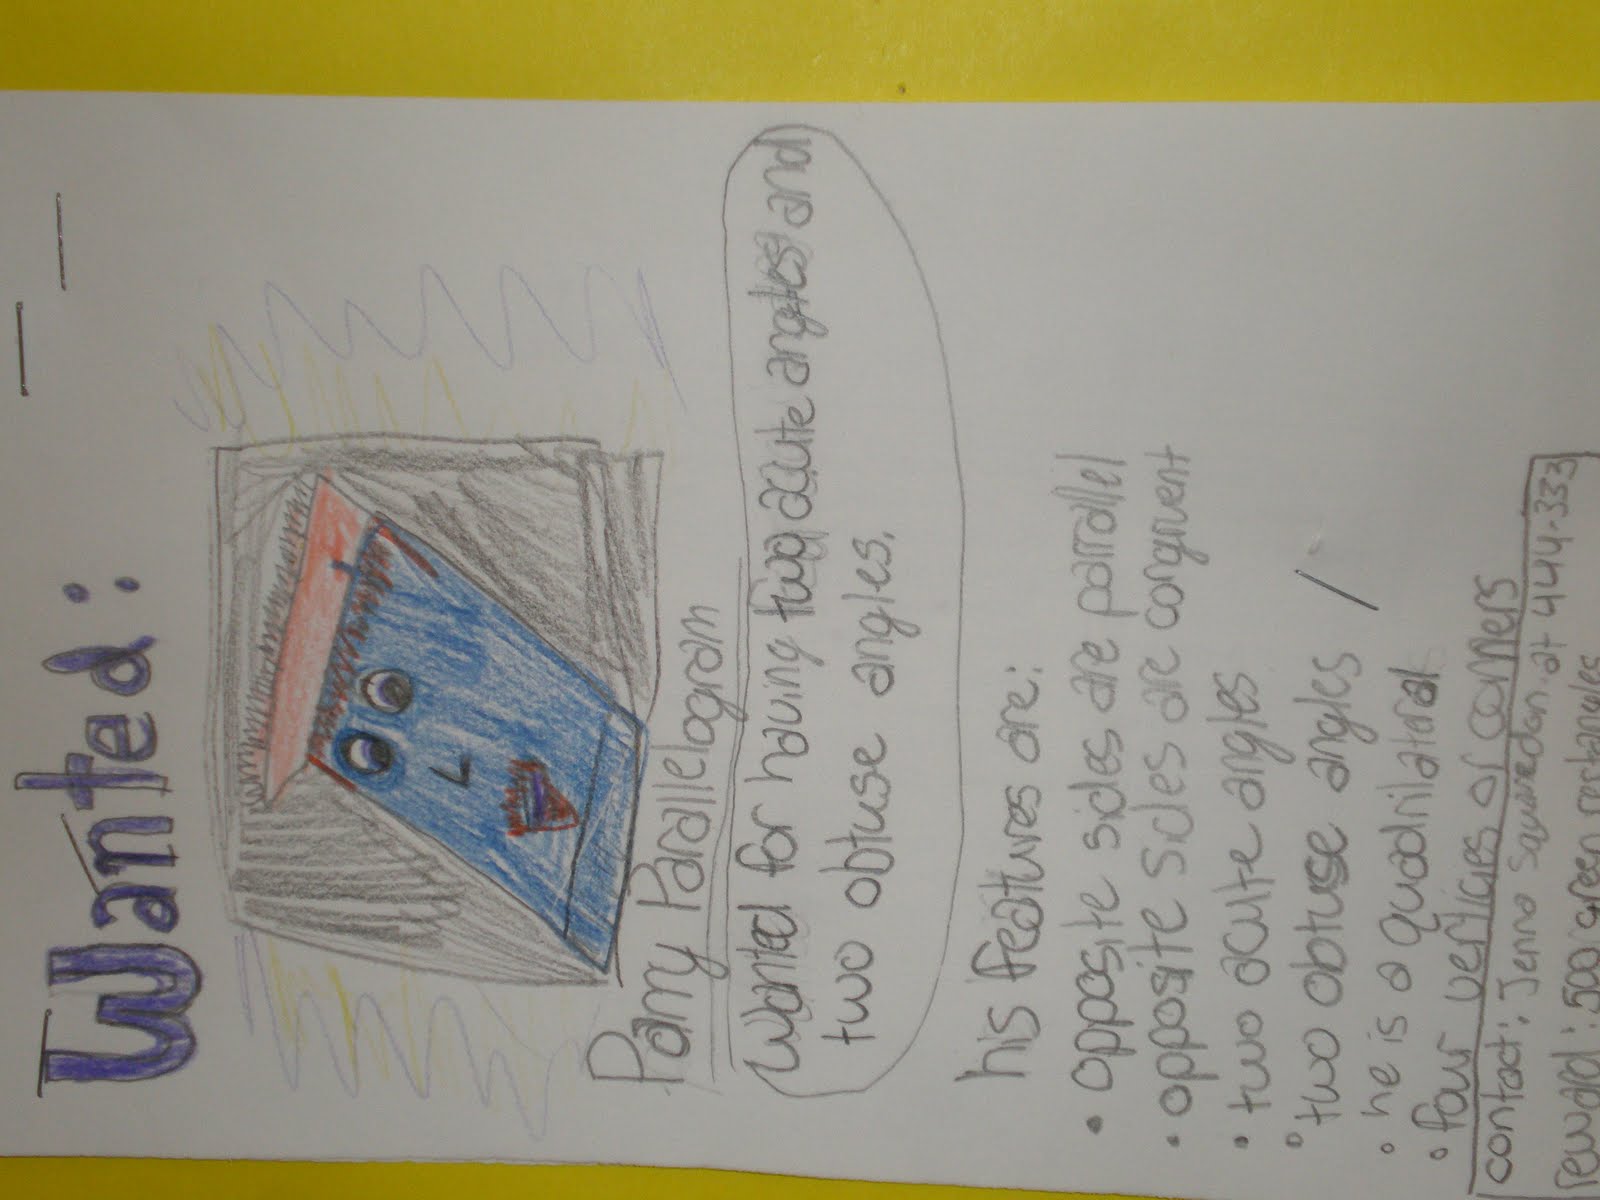 Wanted:
Pamy Parallelogram
Wanted for having two acute angles and
two obtuse angles.
his features are:
• opposite sides are parrallel
• opposite sides are congruent
• two acute angles
• two obtuse angles
• he is a quadrilateral
• four verticies or corners
contact: Jenna Squaredon at 444-333
reward: 500 green rectangles